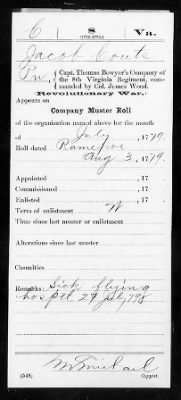 C | 8 | Va.
Jacob Coutz
Pvt., Capt. Thomas Bowyer's Company of
the 8th Virginia Regiment, com-
manded by Col. James Wood.
Revolutionary War.
Appears on
Company Muster Roll
of the organization named above for the month
of July, 1779.
Roll dated
Aug 3, 1779.
Appointed , 17
Commissioned , 17
Enlisted , 17
Term of enlistment W
Time since last muster or enlistment
Alterations since last muster
Casualties
Remarks: Sick flying
(548) Copyist.